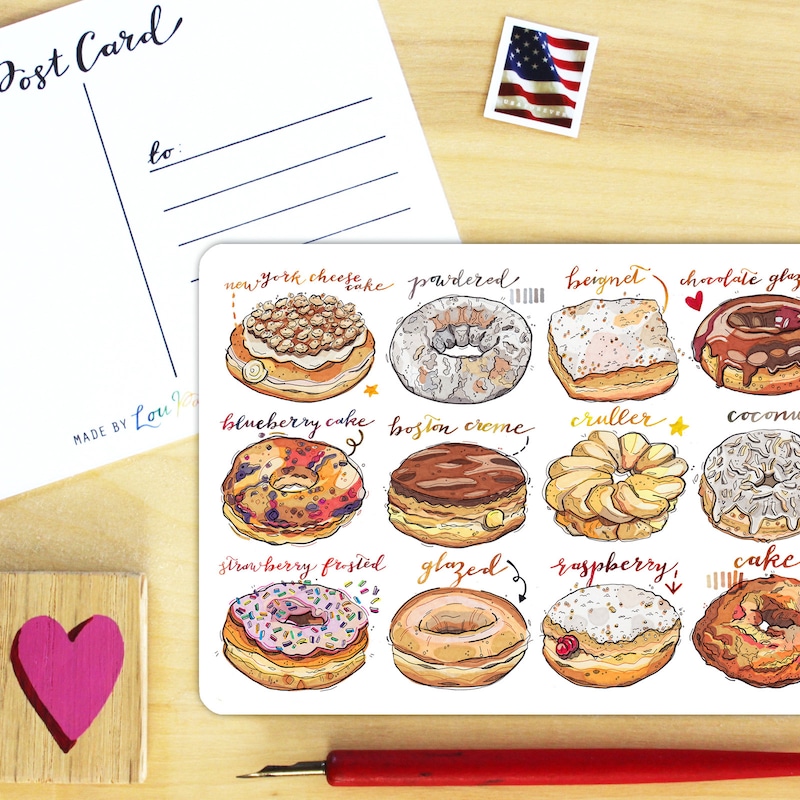 Post Card
to:
MADE BY Lou
new york cheese
cake
powdered
beignet
chocolate glaz
blueberry cake
boston creme
cruller
coconu
strawberry frosted
glazed
raspberry
cake